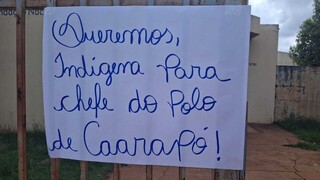 Queremos,
Indígena para
chefe do Polo
de Caarapó!